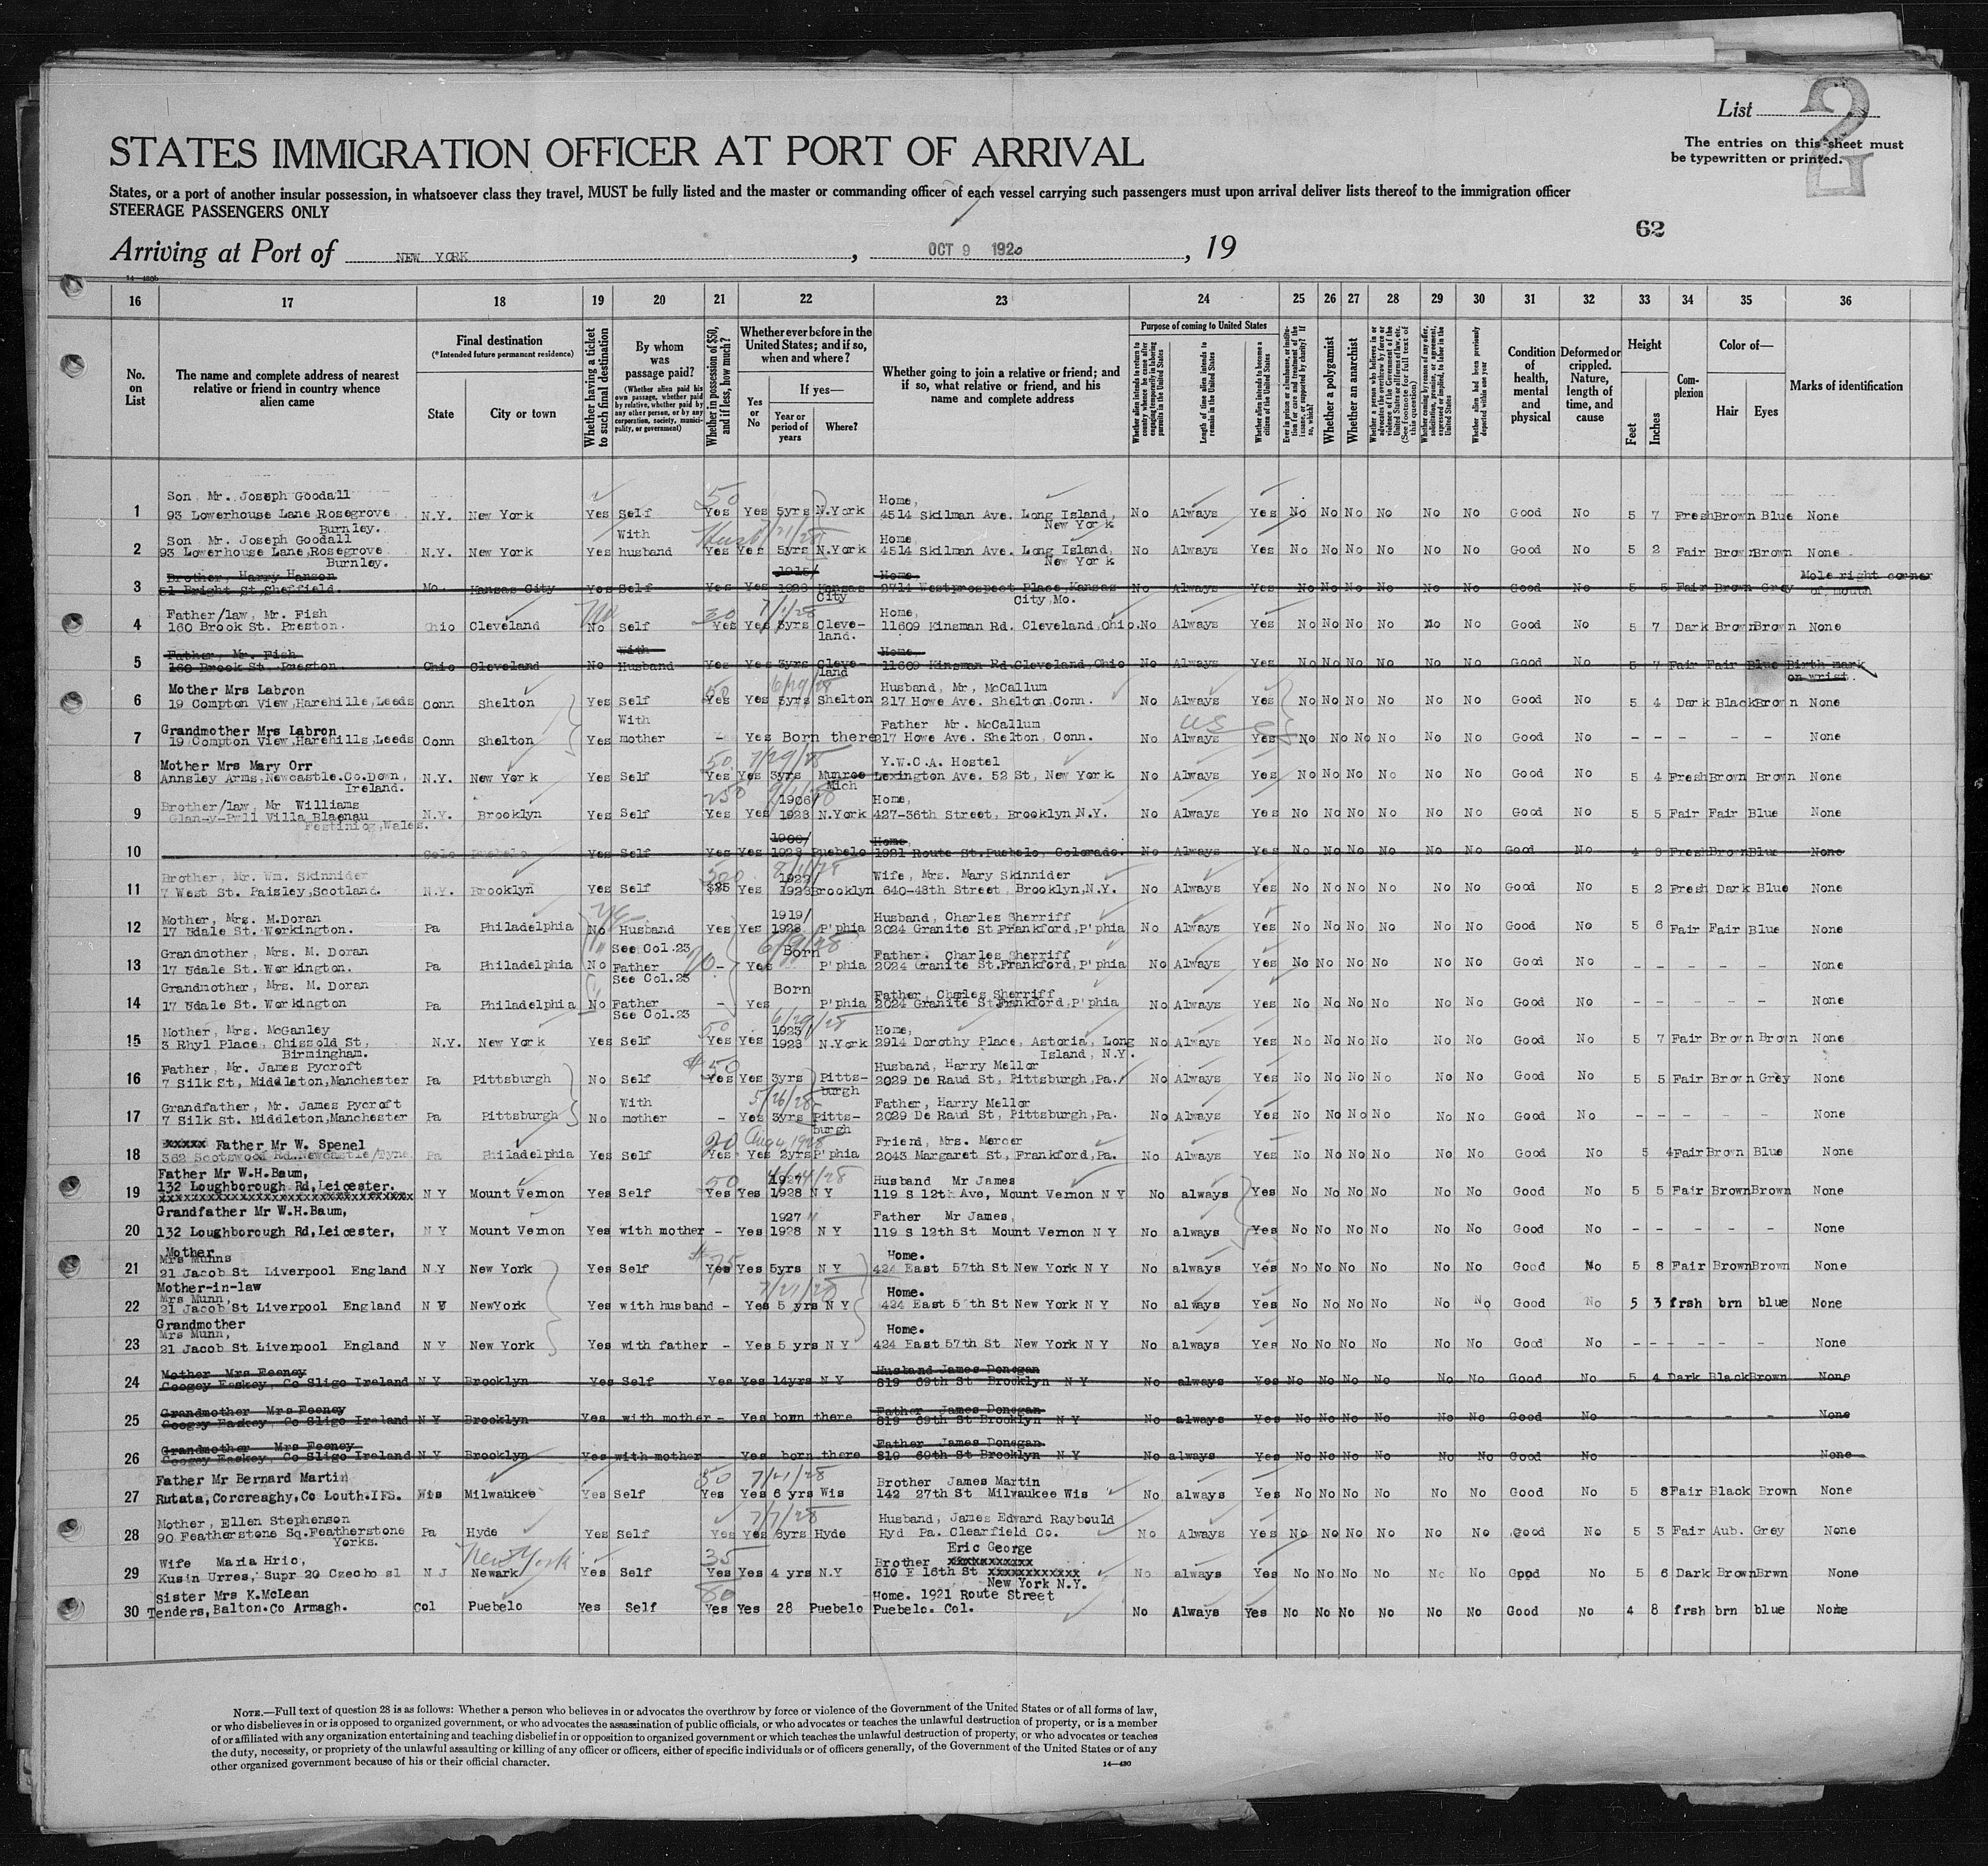 List 2
The entries on this sheet must
be typewritten or printed.
STATES IMMIGRATION OFFICER AT PORT OF ARRIVAL
States, or a port of another insular possession, in whatsoever class they travel, MUST be fully listed and the master or commanding officer of each vessel carrying such passengers must upon arrival deliver lists thereof to the immigration officer
STEERAGE PASSENGERS ONLY
62
Arriving at Port of NEW YORK, OCT 9 1928, 19
14—430b
16 17 18 19 20 21 22 23 24 25 26 27 28 29 30 31 32 33 34 35 36
No. on List
The name and complete address of nearest relative or friend in country whence alien came
Final destination
(*Intended future permanent residence)
State
City or town
Whether having a ticket to such final destination
By whom was passage paid?
(Whether alien paid his own passage, whether paid by relative, whether paid by any other person, or by any corporation, society, municipality, or government)
Whether in possession of $50, and if less, how much?
Whether ever before in the United States; and if so, when and where?
Yes or No
If yes—
Year or period of years
Where?
Whether going to join a relative or friend; and if so, what relative or friend, and his name and complete address
Purpose of coming to United States
Whether alien intends to return to country whence he came after engaging temporarily in laboring pursuits in the United States
Length of time alien intends to remain in the United States
Whether alien intends to become a citizen of the United States
Ever in prison or almshouse, or institution for care and treatment of the insane, or supported by charity? If so, which?
Whether a polygamist
Whether an anarchist
Whether a person who believes in or advocates the overthrow by force or violence of the Government of the United States or all forms of law, etc. (See footnote for full text of this question)
Whether coming by reason of any offer, solicitation, promise, or agreement, expressed or implied, to labor in the United States
Whether alien had been previously deported within one year
Condition of health, mental and physical
Deformed or crippled. Nature, length of time, and cause
Height
Feet
Inches
Complexion
Color of—
Hair
Eyes
Marks of identification
Son, Mr. Joseph Goodall 50 Home,
1 93 Lowerhouse Lane Rosegrove N.Y. New York Yes Self Yes Yes 5yrs N.York 4514 Skilman Ave. Long Island, No Always Yes No No No No No No Good No 5 7 Fresh Brown Blue None
Burnley. New York
Son Mr. Joseph Goodall With Husb 7/21/28 Home
2 93 Lowerhouse Lane, Rosegrove N.Y. New York Yes husband Yes Yes 5yrs N.York 4514 Skilman Ave. Long Island, No Always Yes No No No No No No Good No 5 2 Fair Brown Brown None
Burnley. New York
Brother, Harry Hanson 1915/ Home Mole right corner
3 61 Bright St, Sheffield. Mo. Kansas City Yes Self Yes Yes 1923 Kansas 2714 Westprospect Place, Kansas No Always Yes No No No No No No Good No 5 5 Fair Brown Grey of mouth
City City, Mo.
Father/law, Mr. Fish 30 7/1/28 Home,
4 160 Brook St. Preston. Ohio Cleveland No Self Yes Yes 5yrs Cleve- 11609 Kinsman Rd. Cleveland, Ohio. No Always Yes No No No No No No Good No 5 7 Dark Brown Brown None
land.
Father, Mr. Fish With Home
5 160 Brook St. Preston. Ohio Cleveland No Husband Yes Yes 3yrs Cleve- 11609 Kinsman Rd. Cleveland, Ohio No Always Yes No No No No No No Good No 5 7 Fair Fair Blue Birth mark
land on wrist.
Mother Mrs Labron 50 6/29/28 Husband, Mr, McCallum
6 19 Compton View, Harehills, Leeds Conn Shelton Yes Self Yes Yes 5yrs Shelton 217 Howe Ave. Shelton, Conn. No Always Yes No No No No No No Good No 5 4 Dark Black Brown None
Grandmother Mrs Labron With Father Mr. McCallum US C
7 19 Compton View, Harehills, Leeds Conn Shelton Yes mother - Yes Born there 217 Howe Ave. Shelton, Conn. No Always Yes No No No No No No Good No - - - - - None
Mother Mrs Mary Orr 50 7/29/28 Y.W.C.A. Hostel
8 Annsley Arms, Newcastle. Co. Down, N.Y. New York Yes Self Yes Yes 3yrs Munroe Lexington Ave. 52 St, New York No Always Yes No No No No No No Good No 5 4 Fresh Brown Brown None
Ireland. Mich
Brother/law, Mr Williams 250 9/1/28 1906/ Home,
9 Glan-y-Pwll Villa Blaenau N.Y. Brooklyn Yes Self Yes Yes 1923 N.York 427-36th Street, Brooklyn N.Y. No Always Yes No No No No No No Good No 5 5 Fair Fair Blue None
Festiniog, Wales.
1900/ Home,
10 Colo Puebelo Yes Self Yes Yes 1923 Puebelo 1921 Route St. Puebelo, Colorado. No Always Yes No No No No No No Good No 4 8 Fresh Brown Blue None
Brother, Mr. Wm. Skinnider 300 1922/ Wife, Mrs. Mary Skinnider
11 7 West St. Paisley, Scotland. N.Y. Brooklyn Yes Self $25 Yes 1923 Brooklyn 640-48th Street, Brooklyn, N.Y. No Always Yes No No No No No No Good No 5 2 Fresh Dark Blue None
Mother, Mrs. M. Doran 1919/ Husband, Charles Sherriff
12 17 Udale St. Workington. Pa Philadelphia No Husband Yes Yes 1923 P'phia 2024 Granite St. Frankford, P'phia No Always Yes No No No No No No Good No 5 6 Fair Fair Blue None
Grandmother, Mrs. M. Doran See Col. 23 6/9/28 Born Father, Charles Sherriff
13 17 Udale St. Workington. Pa Philadelphia No Father - Yes P'phia 2024 Granite St. Frankford, P'phia No Always Yes No No No No No No Good No - - - - - None
Grandmother, Mrs. M. Doran See Col. 23 Born Father, Charles Sherriff
14 17 Udale St. Workington Pa Philadelphia No Father - Yes P'phia 2024 Granite St. Frankford, P'phia No Always Yes No No No No No No Good No - - - - - None
See Col. 23
Mother, Mrs. McGanley 50 6/29/28 1923/ Home,
15 3 Rhyl Place, Chissold St, N.Y. New York Yes Self Yes Yes 1923 N.York 2914 Dorothy Place, Astoria, Long No Always Yes No No No No No No Good No 5 7 Fair Brown Brown None
Birmingham. Island, N.Y.
Father, Mr. James Pycroft $50 Husband, Harry Mellor
16 7 Silk St, Middleton, Manchester Pa Pittsburgh No Self Yes Yes 3yrs Pitts- 2029 De Raud St, Pittsburgh, Pa. No Always Yes No No No No No No Good No 5 5 Fair Brown Grey None
burgh
Grandfather, Mr. James Pycroft With 5/26/28 Father, Harry Mellor
17 7 Silk St, Middleton, Manchester Pa Pittsburgh No mother - Yes 3yrs Pitts- 2029 De Raud St, Pittsburgh, Pa. No Always Yes No No No No No No Good No - - - - - None
burgh
xxxxx Father Mr W. Spenel 20 Aug 4, 1928 Friend, Mrs. Mercer
18 362 Scotswood Rd. Newcastle/Tyne Pa Philadelphia Yes Self Yes Yes 2yrs P'phia 2043 Margaret St, Frankford, Pa. No Always Yes No No No No No No Good No 5 4 Fair Brown Blue None
Father Mr W.H.Baum, 50 1927 Husband Mr James
19 132 Loughborough Rd, Leicester. N Y Mount Vernon Yes Self Yes Yes 1928 N Y 119 S 12th Ave, Mount Vernon N Y No always Yes No No No No No No Good No 5 5 Fair Brown Brown None
Grandfather Mr W.H.Baum, 1927 Father Mr James,
20 132 Loughborough Rd, Leicester, N Y Mount Vernon Yes with mother - Yes 1928 N Y 119 S 12th St Mount Vernon N Y No always Yes No No No No No No Good No - - - - - None
Mother
Mrs Munns $75 Home.
21 21 Jacob St Liverpool England N Y New York Yes Self Yes Yes 5yrs N Y 424 East 57th St New York N Y No always Yes No No No No No No Good No 5 8 Fair Brown Brown None
Mother-in-law
Mrs Munn, 7/21/28 Home.
22 21 Jacob St Liverpool England N Y NewYork Yes with husband - Yes 5 yrs N Y 424 East 57th St New York N Y No always Yes No No No No No No Good No 5 3 frsh brn blue None
Grandmother
Mrs Munn, Home.
23 21 Jacob St Liverpool England N Y New York Yes with father - Yes 5 yrs N Y 424 East 57th St New York N Y No always Yes No No No No No No Good No - - - - - None
Mother Mrs Feeney Husband James Donegan
24 Coogey Easkey, Co Sligo Ireland N Y Brooklyn Yes Self Yes Yes 14yrs N Y 819 69th St Brooklyn N Y No always Yes No No No No No No Good No 5 4 Dark Black Brown None
Grandmother Mrs Feeney Father James Donegan
25 Coogey Easkey, Co Sligo Ireland N Y Brooklyn Yes with mother - Yes born there 819 69th St Brooklyn N Y No always Yes No No No No No No Good No - - - - - None
Grandmother Mrs Feeney Father James Donegan
26 Coogey Easkey, Co Sligo Ireland N Y Brooklyn Yes with mother Yes born there 819 69th St Brooklyn N Y No always Yes No No No No No No Good No None
Father Mr Bernard Martin 50 7/21/28 Brother James Martin
27 Rutata, Corcreaghy, Co Louth. IFS. Wis Milwaukee Yes Self Yes Yes 6 yrs Wis 142 27th St Milwaukee Wis No always Yes No No No No No No Good No 5 8 Fair Black Brown None
Mother, Ellen Stephenson 7/7/28 Husband, James Edward Raybould
28 90 Featherstone Sq. Featherstone Pa Hyde Yes Self Yes Yes 3yrs Hyde Hyd Pa. Clearfield Co. No Always Yes No No No No No No Good No 5 3 Fair Aub. Grey None
Yorks. Eric George
Wife Maria Hric, New York 35 Brother xxxxxxxxxxx
29 Kusin Urres, Supr 20 Czecho sl N J Newark Yes Self Yes Yes 4 yrs N.Y 610 E 16th St xxxxxxxxxxxx No always Yes No No No No No No Good No 5 6 Dark Brown Brwn None
New York N.Y.
Sister Mrs K.McLean 80 Home. 1921 Route Street
30 Tenders, Balton. Co Armagh. Col Puebelo Yes Self Yes Yes 28 Puebelo Puebelo. Col. No Always Yes No No No No No No Good No 4 8 frsh brn blue None
NOTE.—Full text of question 28 is as follows: Whether a person who believes in or advocates the overthrow by force or violence of the Government of the United States or of all forms of law,
or who disbelieves in or is opposed to organized government, or who advocates the assassination of public officials, or who advocates or teaches the unlawful destruction of property, or is a member
of or affiliated with any organization entertaining and teaching disbelief in or opposition to organized government or which teaches the unlawful destruction of property, or who advocates or teaches
the duty, necessity, or propriety of the unlawful assaulting or killing of any officer or officers, either of specific individuals or of officers generally, of the Government of the United States or of any
other organized government because of his or their official character.
14—430